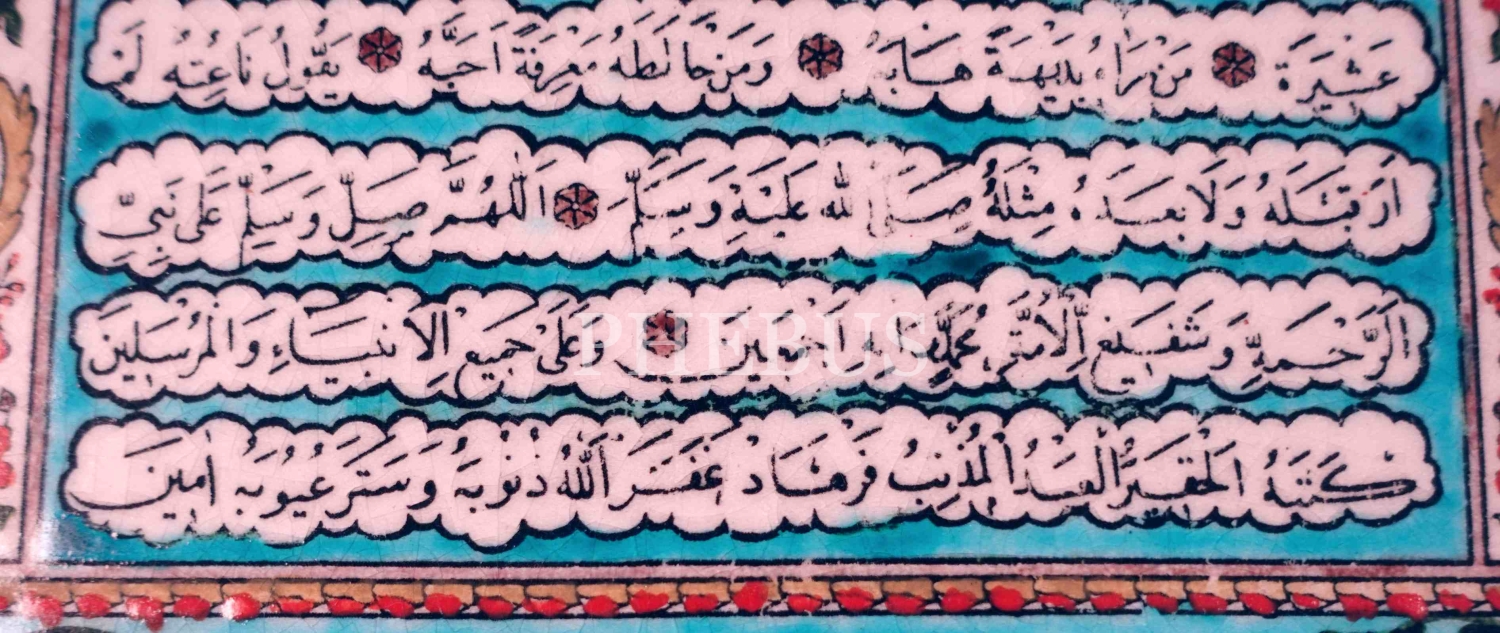 عَشِيرَةً مَنْ رَاٰهُ بَدِيهَةً هَابَهُ وَمَنْ خَالَطَهُ مَعْرِفَةً اَحَبَّهُ يَقُولُ نَاعِتُهُ لَمْ
اَرَ قَبْلَهُ وَلَا بَعْدَهُ مِثْلَهُ صَلَّى اللّٰهُ عَلَيْهِ وَسَلَّمَ اَللّٰهُمَّ صَلِّ وَسَلِّمْ عَلٰى نَبِيِّ
الرَّحْمَةِ وَشَفِيعِ الْاُمَّةِ مُحَمَّدٍ وَاٰلِهِ اَجْمَعِينَ وَعَلٰى جَمِيعِ الْاَنْبِيَاءِ وَالْمُرْسَلِينَ
كَتَبَهُ الْحَقِيرُ الْعَبْدُ الْمُذْنِبُ فَرْهَاد غَفَرَ اللّٰهُ ذُنُوبَهُ وَسَتَرَ عُيُوبَهُ اٰمِينَ
PHEBUS